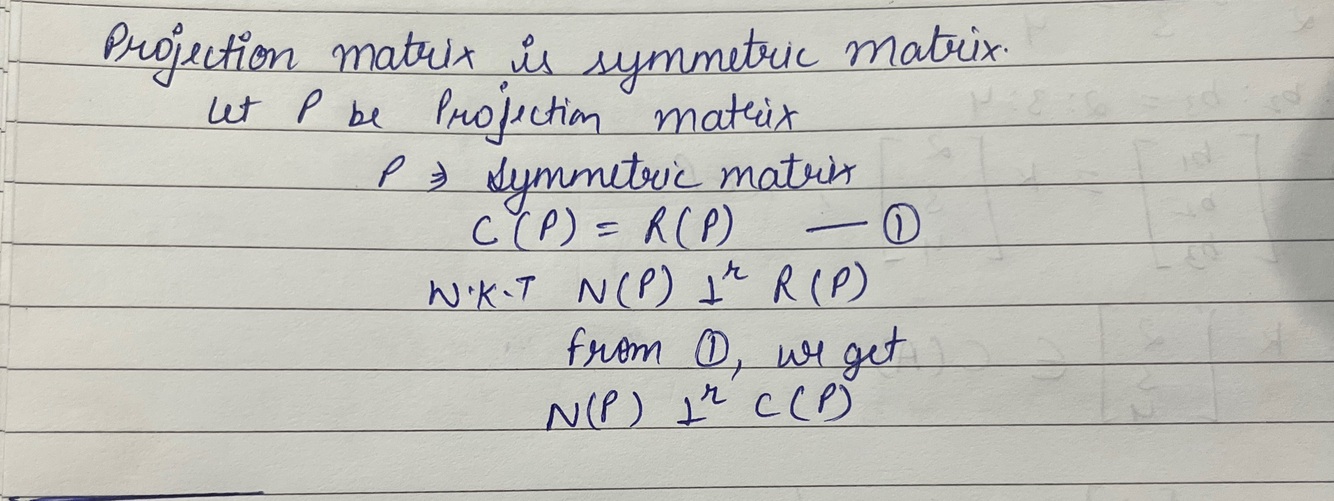 Projection matrix is symmetric matrix.
Let P be Projection matrix
P ⇒ symmetric matrix
C(P) = R(P) — ①
W.K.T N(P) ⊥ʳ R(P)
from ①, we get
N(P) ⊥ʳ C(P)